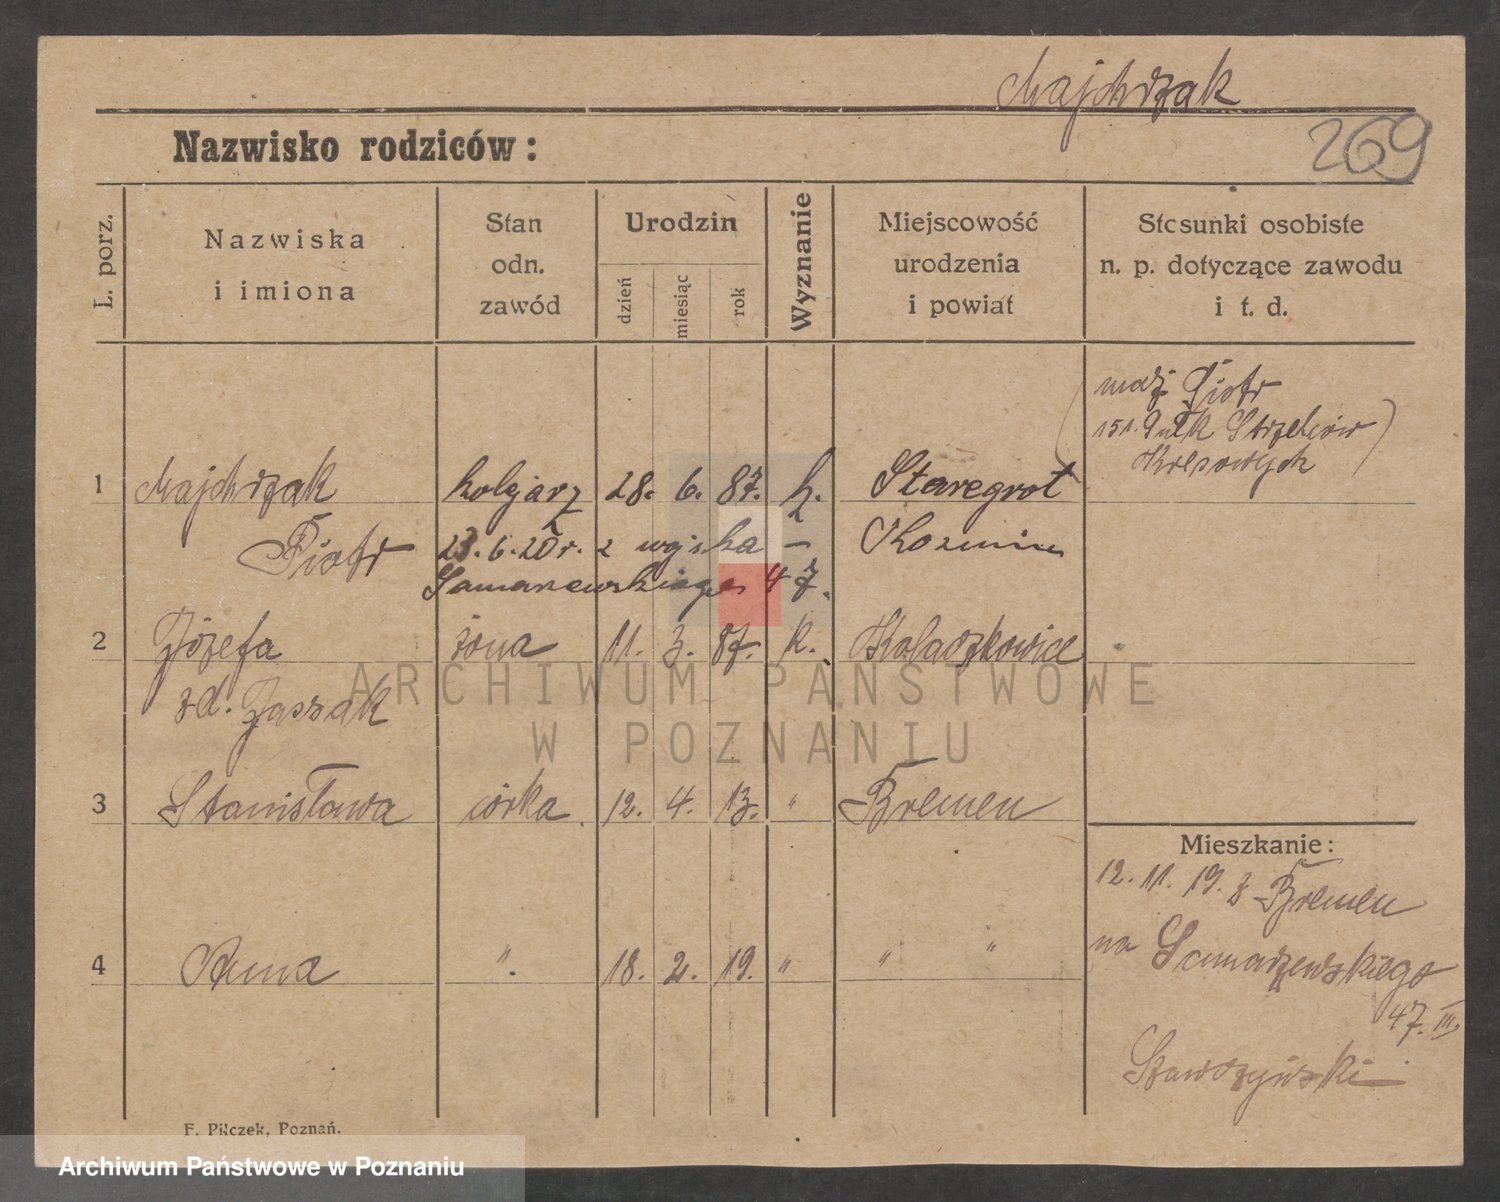 Majchrzak
269
Nazwisko rodziców:
L. porz.
Nazwiska
i imiona
Stan
odn.
zawód
Urodzin
dzień
miesiąc
rok
Wyznanie
Miejscowość
urodzenia
i powiat
Stosunki osobiste
n. p. dotyczące zawodu
i t. d.
(mąż Piotr
151. Pułk Strzelców
Kresowych)
1 Majchrzak kolejarz 28. 6. 87. k. Staregrot
Piotr 23. 6. 20 r. z wojska – Kozmin
Samarzewskiego 47.
2 Józefa żona 11. 3. 87. k. Kaladzkowice
z d. Jaszak
3 Stanisława córka 12. 4. 13. " Bremen
Mieszkanie:
12. 11. 19. z Bremen
4 Anna ". 18. 2. 19. " " "
na Samarzewskiego
47. III,
Szawdzyński
F. Pilczek, Poznań.
ARCHIWUM PAŃSTWOWE
W POZNANIU
Archiwum Państwowe w Poznaniu